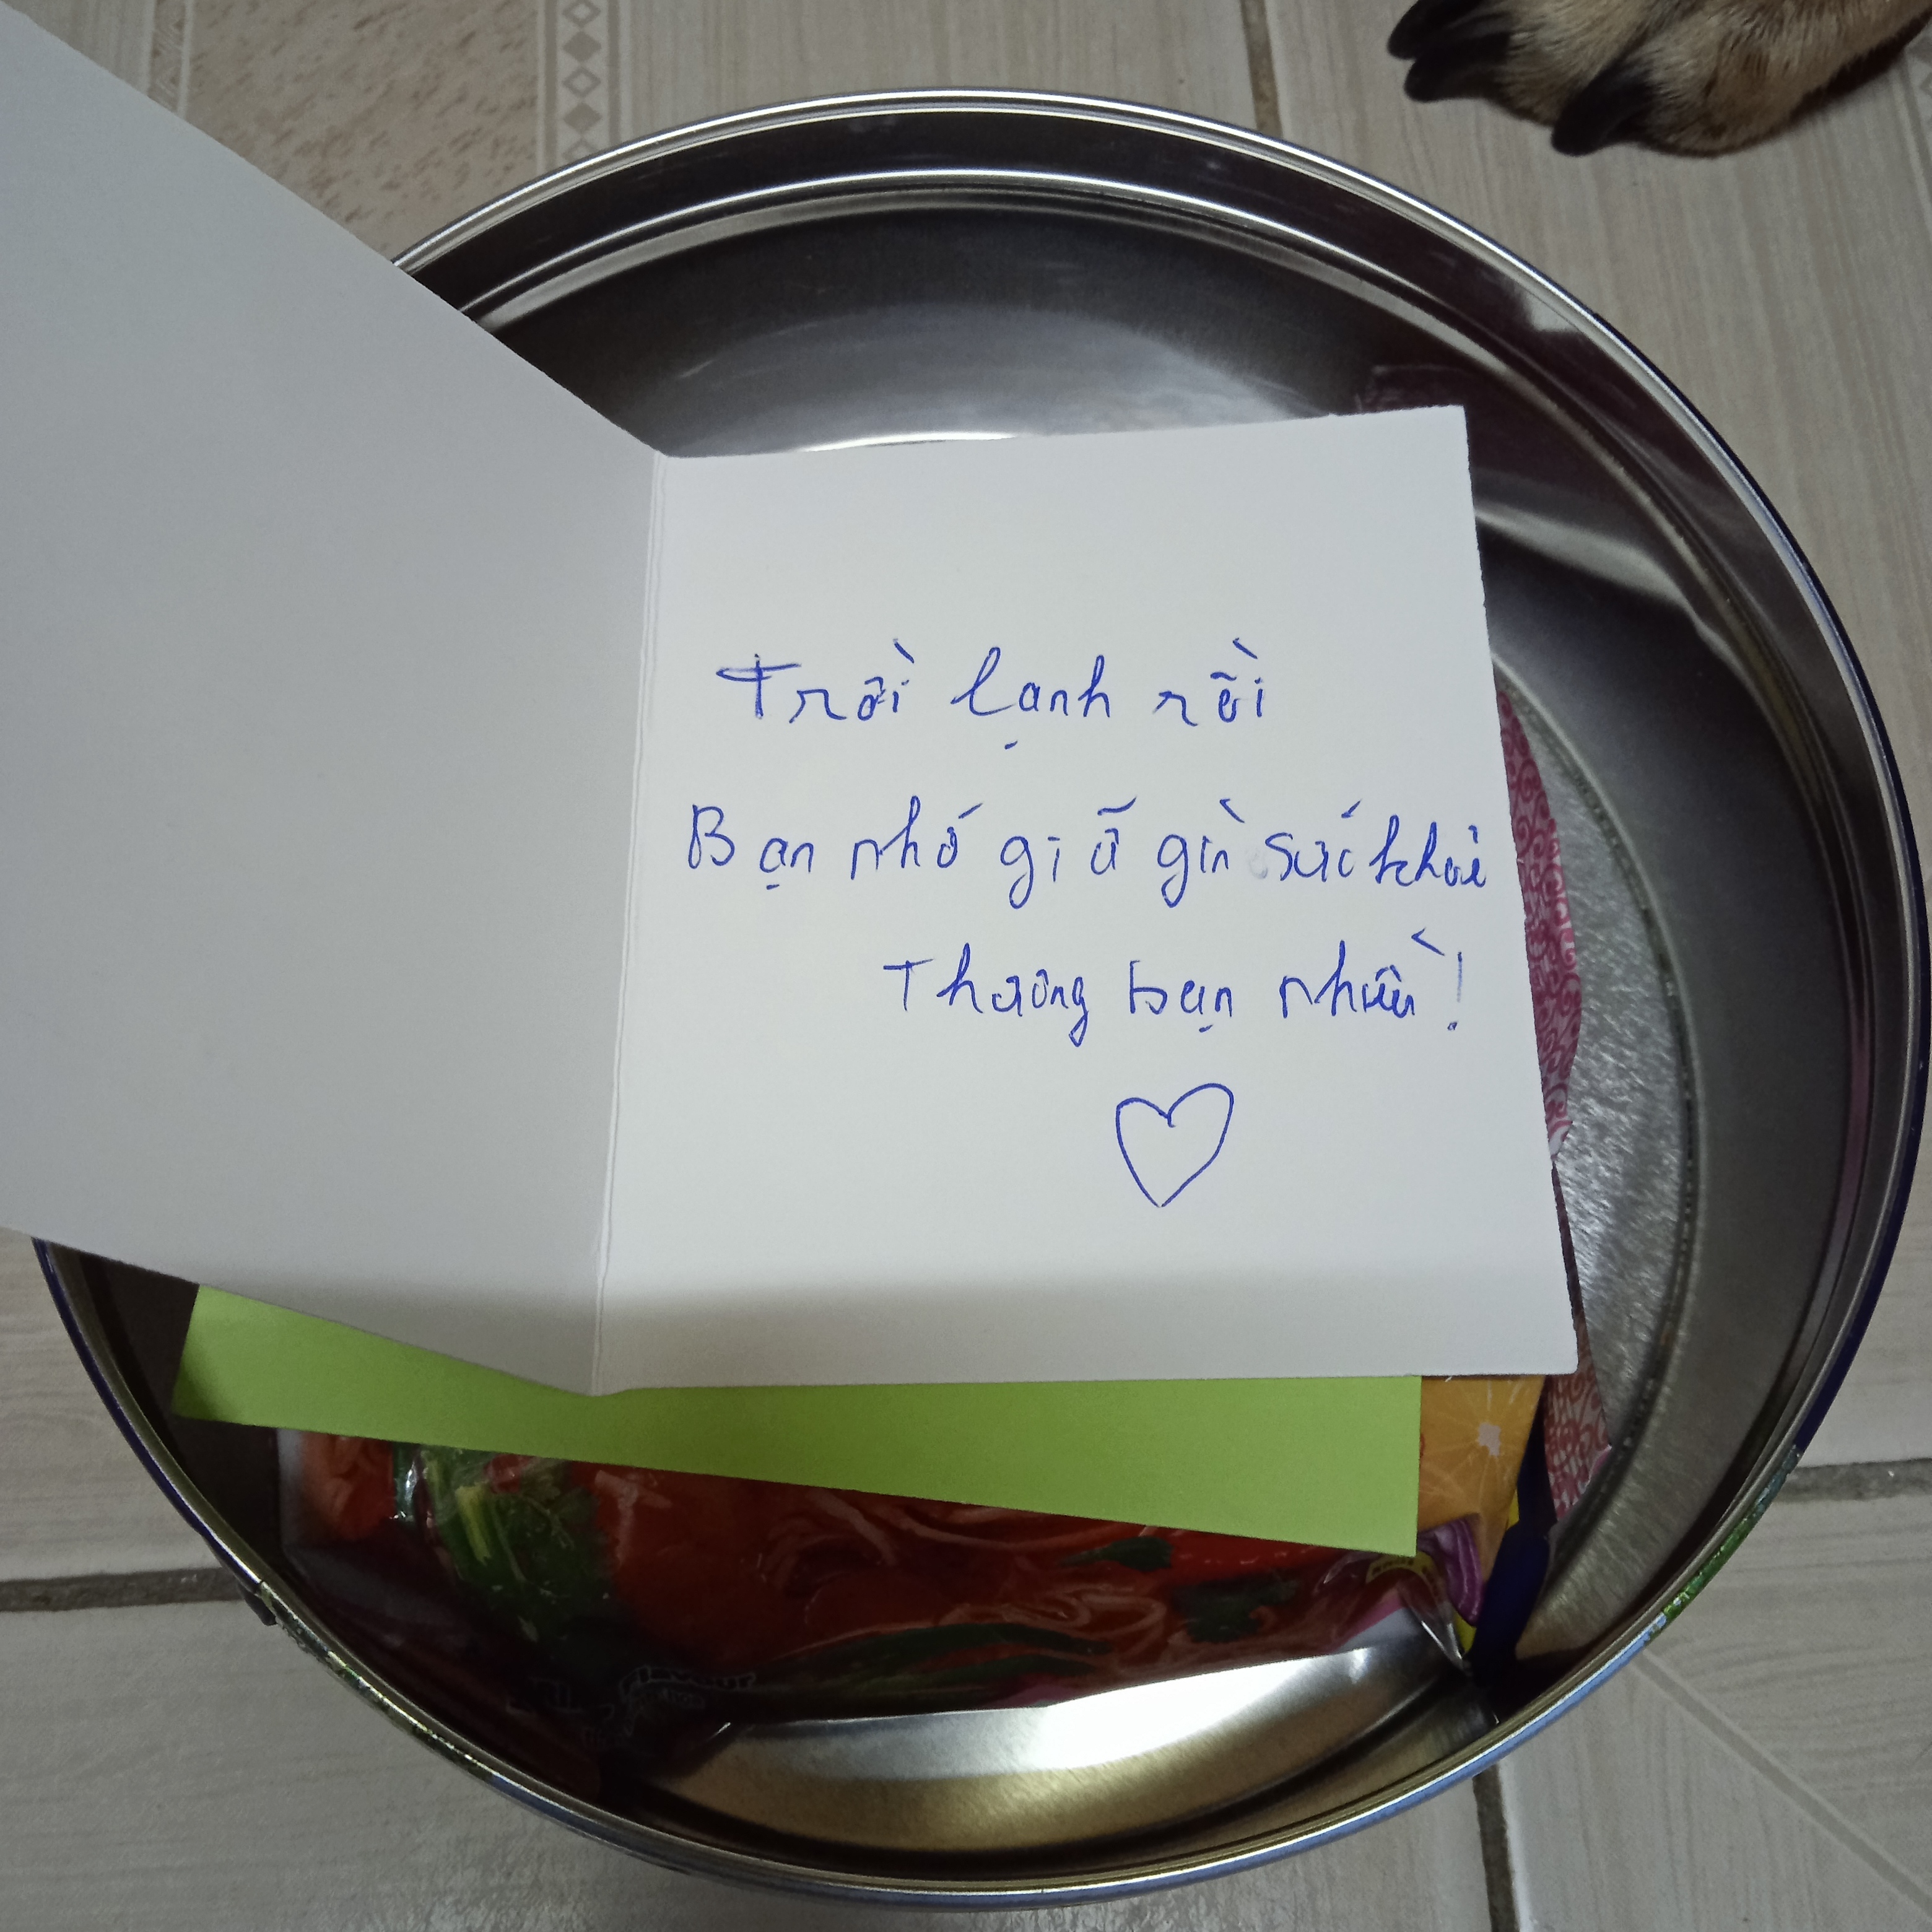 Trời lạnh rồi
Bạn nhớ giữ gìn sức khỏe
Thương bạn nhiều!
flavour